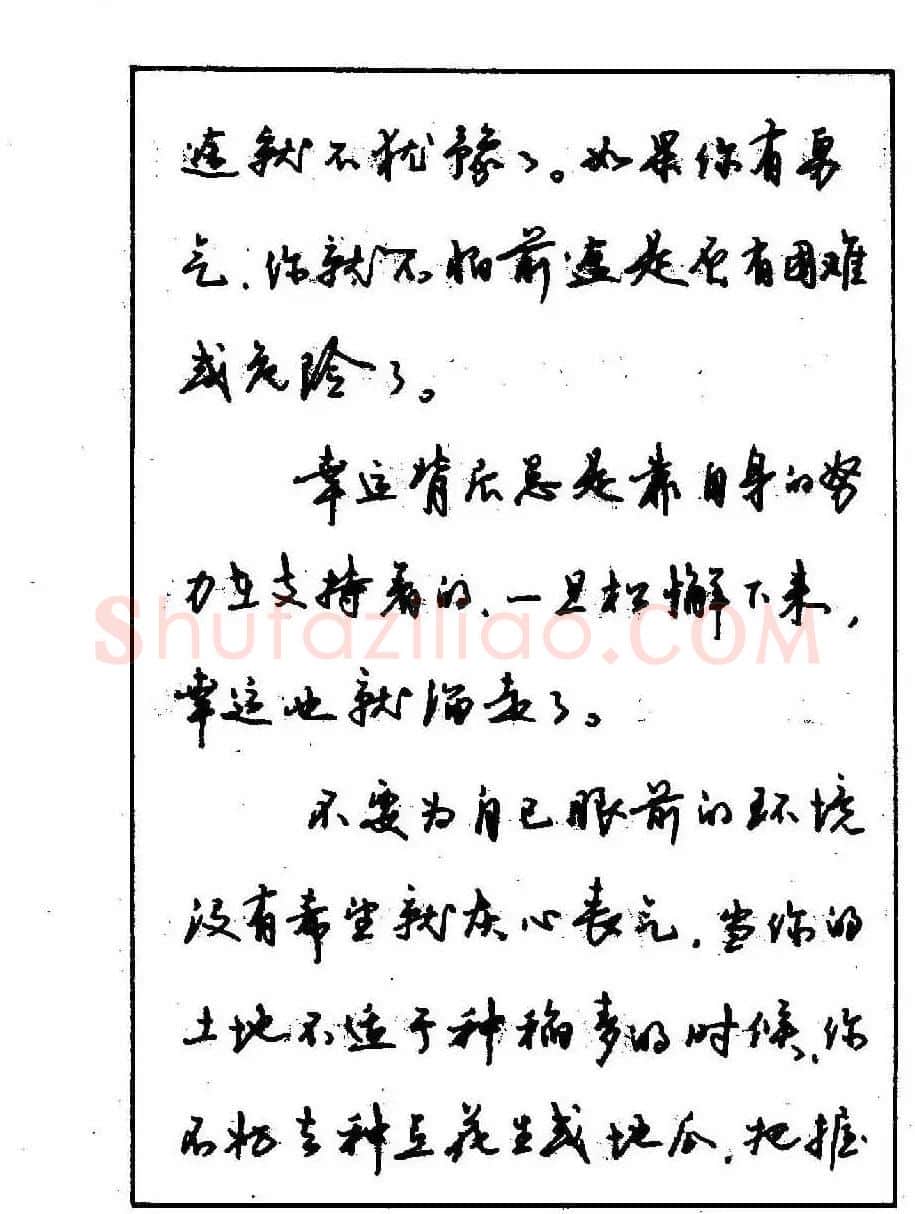 途就不犹豫了。如果你有勇
气，你就不怕前途是否有困难
或危险了。
幸运背后总是靠自身的努
力在支持着的，一旦松懈下来，
幸运也就溜走了。
不要为自己眼前的环境
没有希望就灰心丧气，当你的
土地不适于种稻麦的时候，你
不妨去种点花生或地瓜，把握
Shufaziliao.COM